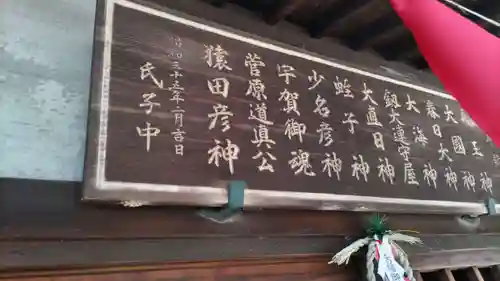 王神
大国大神
春日大神
大海神
劔大連守屋
大直日神
蛭子神
少名彦神
宇賀御魂
菅原道真公
猿田彦神
昭和三十五年二月吉日
氏子中